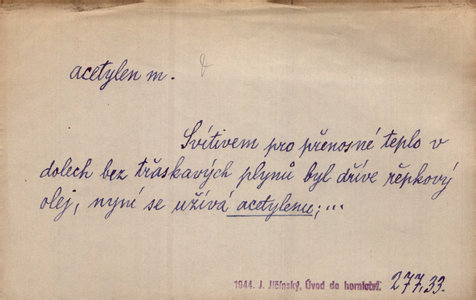 acetylen m.
Svítivem pro přenosné teplo v
dolech bez třaskavých plynů byl dříve řepkový
olej, nyní se užívá acetylenu;...
1944. J. Jičínský, Úvod do hornictví. 277,33.